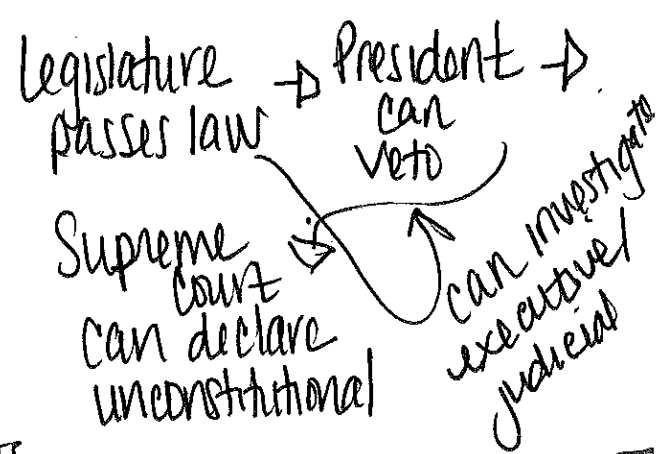 Legislature
passes law
President
can
veto
Supreme
court
can declare
unconstitutional
can investigate
executive/
judicial